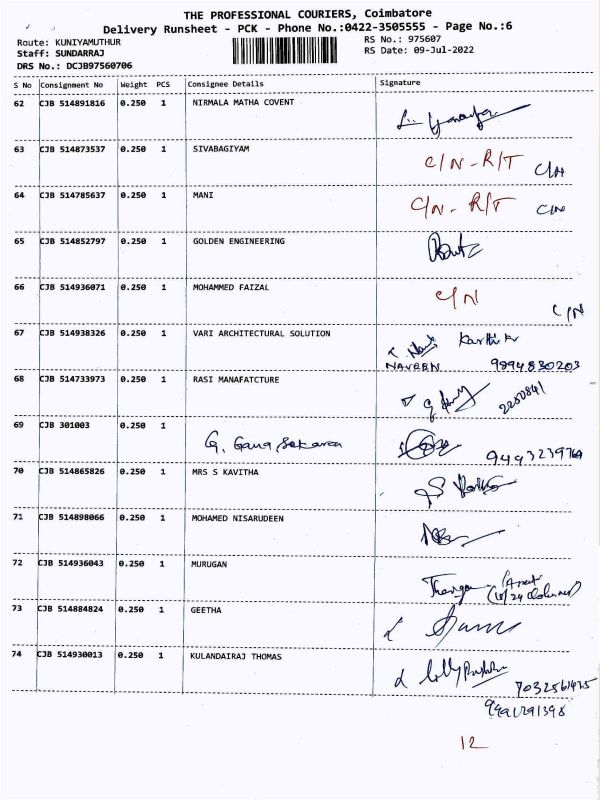 THE PROFESSIONAL COURIERS, Coimbatore
Delivery Runsheet - PCK - Phone No.:0422-3505555 - Page No.:6
Route: KUNIYAMUTHUR RS No.: 975607
Staff: SUNDARRAJ RS Date: 09-Jul-2022
DRS No.: DCJB97560706
S No Consignment No Weight PCS Consignee Details Signature
62 CJB 514891816 0.250 1 NIRMALA MATHA COVENT
63 CJB 514873537 0.250 1 SIVABAGIYAM C/N - R/T C/N
64 CJB 514785637 0.250 1 MANI C/N - R/T C/N
65 CJB 514852797 0.250 1 GOLDEN ENGINEERING
66 CJB 514936071 0.250 1 MOHAMMED FAIZAL C/N C/N
67 CJB 514938326 0.250 1 VARI ARCHITECTURAL SOLUTION
NAVEEN 9894830203
68 CJB 514733973 0.250 1 RASI MANAFATCTURE
69 CJB 301003 0.250 1
G. Gana Sekaran
70 CJB 514865826 0.250 1 MRS S KAVITHA
71 CJB 514898066 0.250 1 MOHAMED NISARUDEEN
72 CJB 514936043 0.250 1 MURUGAN
73 CJB 514884824 0.250 1 GEETHA
74 CJB 514930013 0.250 1 KULANDAIRAJ THOMAS
12